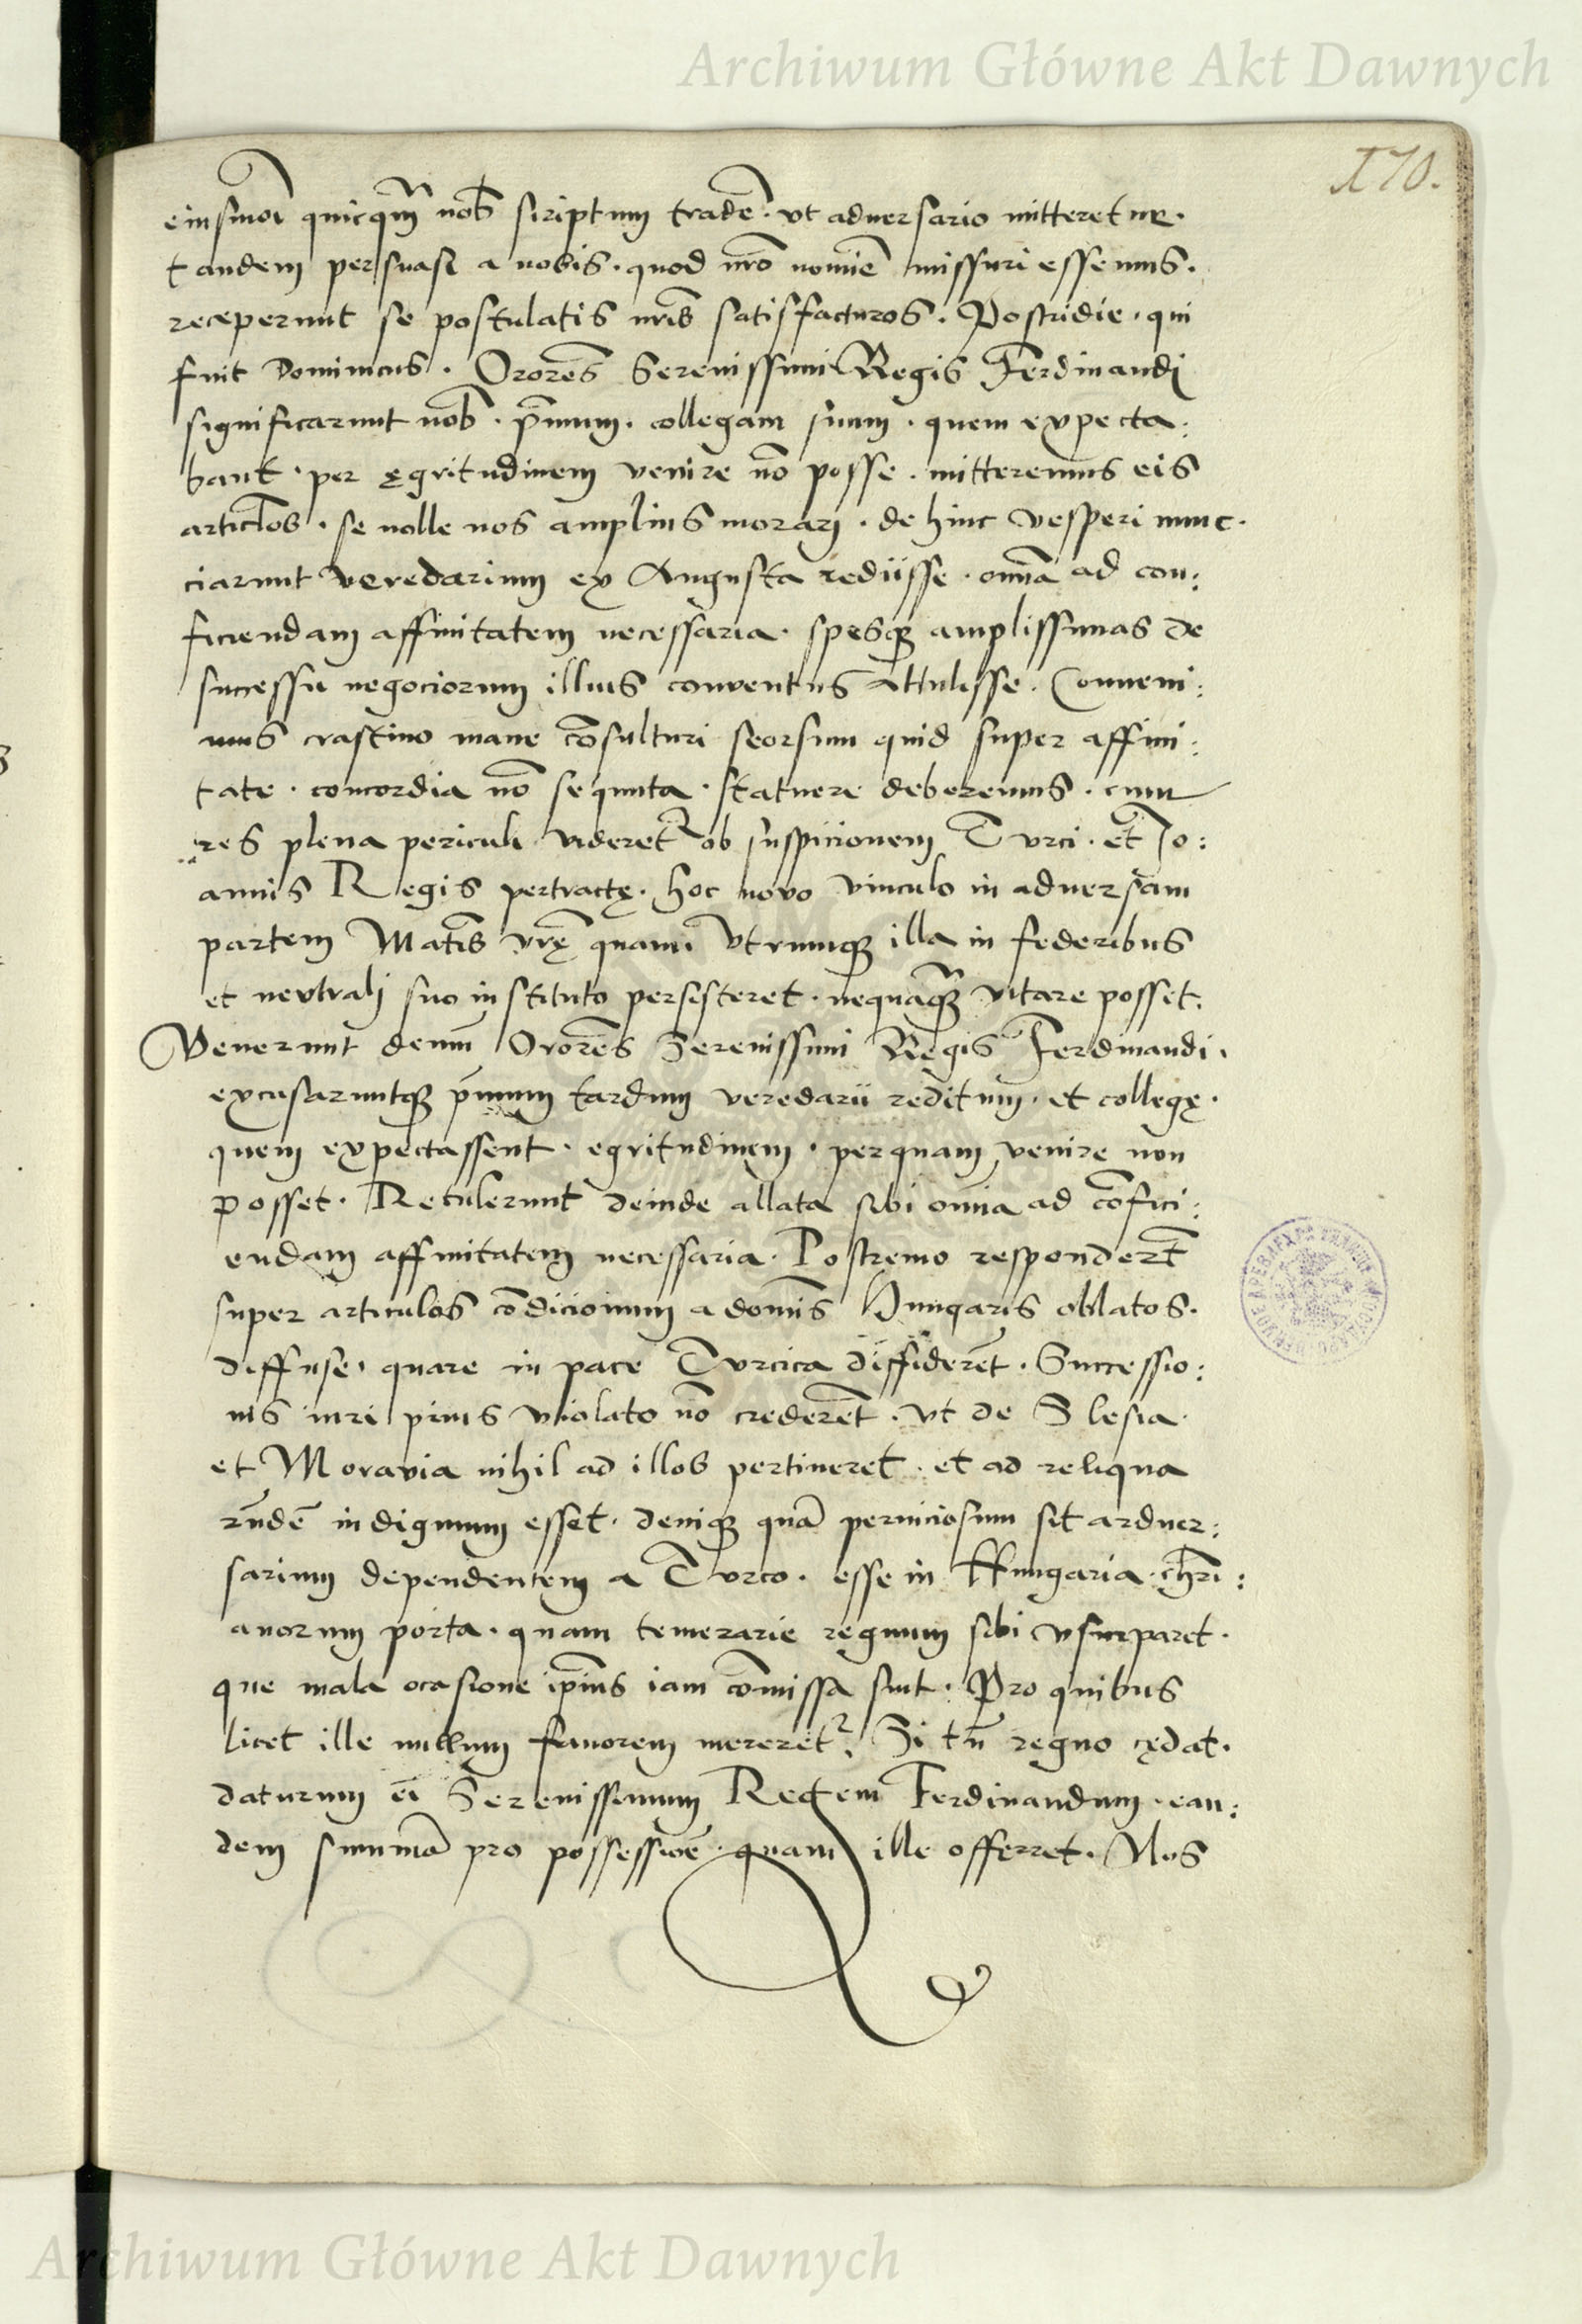 Archiwum Główne Akt Dawnych
170.
eiusmoi quicqm̄ nob̄ scriptum tradē. vt adversario mitteretur.
tandem persuasi a nobis. quod nr̄o nomīe missuri essemus.
receperunt se postulatis nr̄is satisfacturos. Postridie. qui
fuit Dominicus. Ororēs Serenissimi Regis Ferdinandi
significarunt nob̄. p̄mum. collegam suum. quem expecta:
bant. per ęgritudinem venire nō posse. mitteremus eis
articlos. se nolle nos amplius morari. de hinc vesperi nunc.
ciarunt veredarium ex Augusta rediisse. omnā ad con:
ficiendam affinitatem necessaria. spesqꝫ amplissimas de
successu negociorum illius conventus attulisse. Conveni:
mus crastino mane cōsulturi seorsum quid super affini:
tate. concordia nō sequuta. statuere deberemus. cum
res plena periculi videret᷑ ob suspicionem Turci. et Jo:
annis Regis pertractę. hoc novo vinculo in adversam
partem Matis vr̄ę quamvi utrumqꝫ illa in federibus
et neutrali suo instituto persisteret. nequaqꝫ vitare posset.
Venerunt demū Ororēs Serenissimi Regis Ferdinandi.
excusaruntqꝫ p̄mum tardum veredarii reditum. et collegę.
quem expectassent. egritudinem. perquam venire non
posset. Retulerunt deinde allata sibi omnia ad cōfici:
endam affinitatem necessaria. Postremo responder̄t
super articulos cōdicionum a domīs Hungaris oblatos.
diffuse. quare in pace Turcica diffiderēt. Successio:
nis iuri prius violato nō crederēt. vt de Slesia
et Moravia nihil ad illos pertineret. et ad reliqua
rn̄dē indignum esset. deniqꝫ quā perniciosum sit adver:
sarium dependentem a Turco. esse in Hungaria. chr̄i:
anorum porta. quam temerarie regnum sibi usurparet.
que mala ocasione ip̄ius iam cōmissa sint. Pro quibus
licet ille nullum favorem mereret᷑. Si tn̄ regno cędat.
daturum ei Serenissimum Regem Ferdinandum. ean:
dem summā pro possessiōe. quam ille offerret. Nos
Archiwum Główne Akt Dawnych